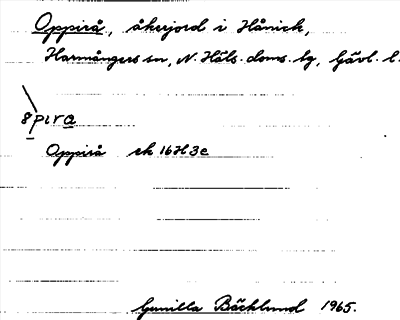 Oppirå, åkerjord i Hånick,
Harmångers sn, N. Häls. doms. lg, Gävl. l.
8pıra
Oppirå ek 16H3c
Gunilla Bäcklund 1965.